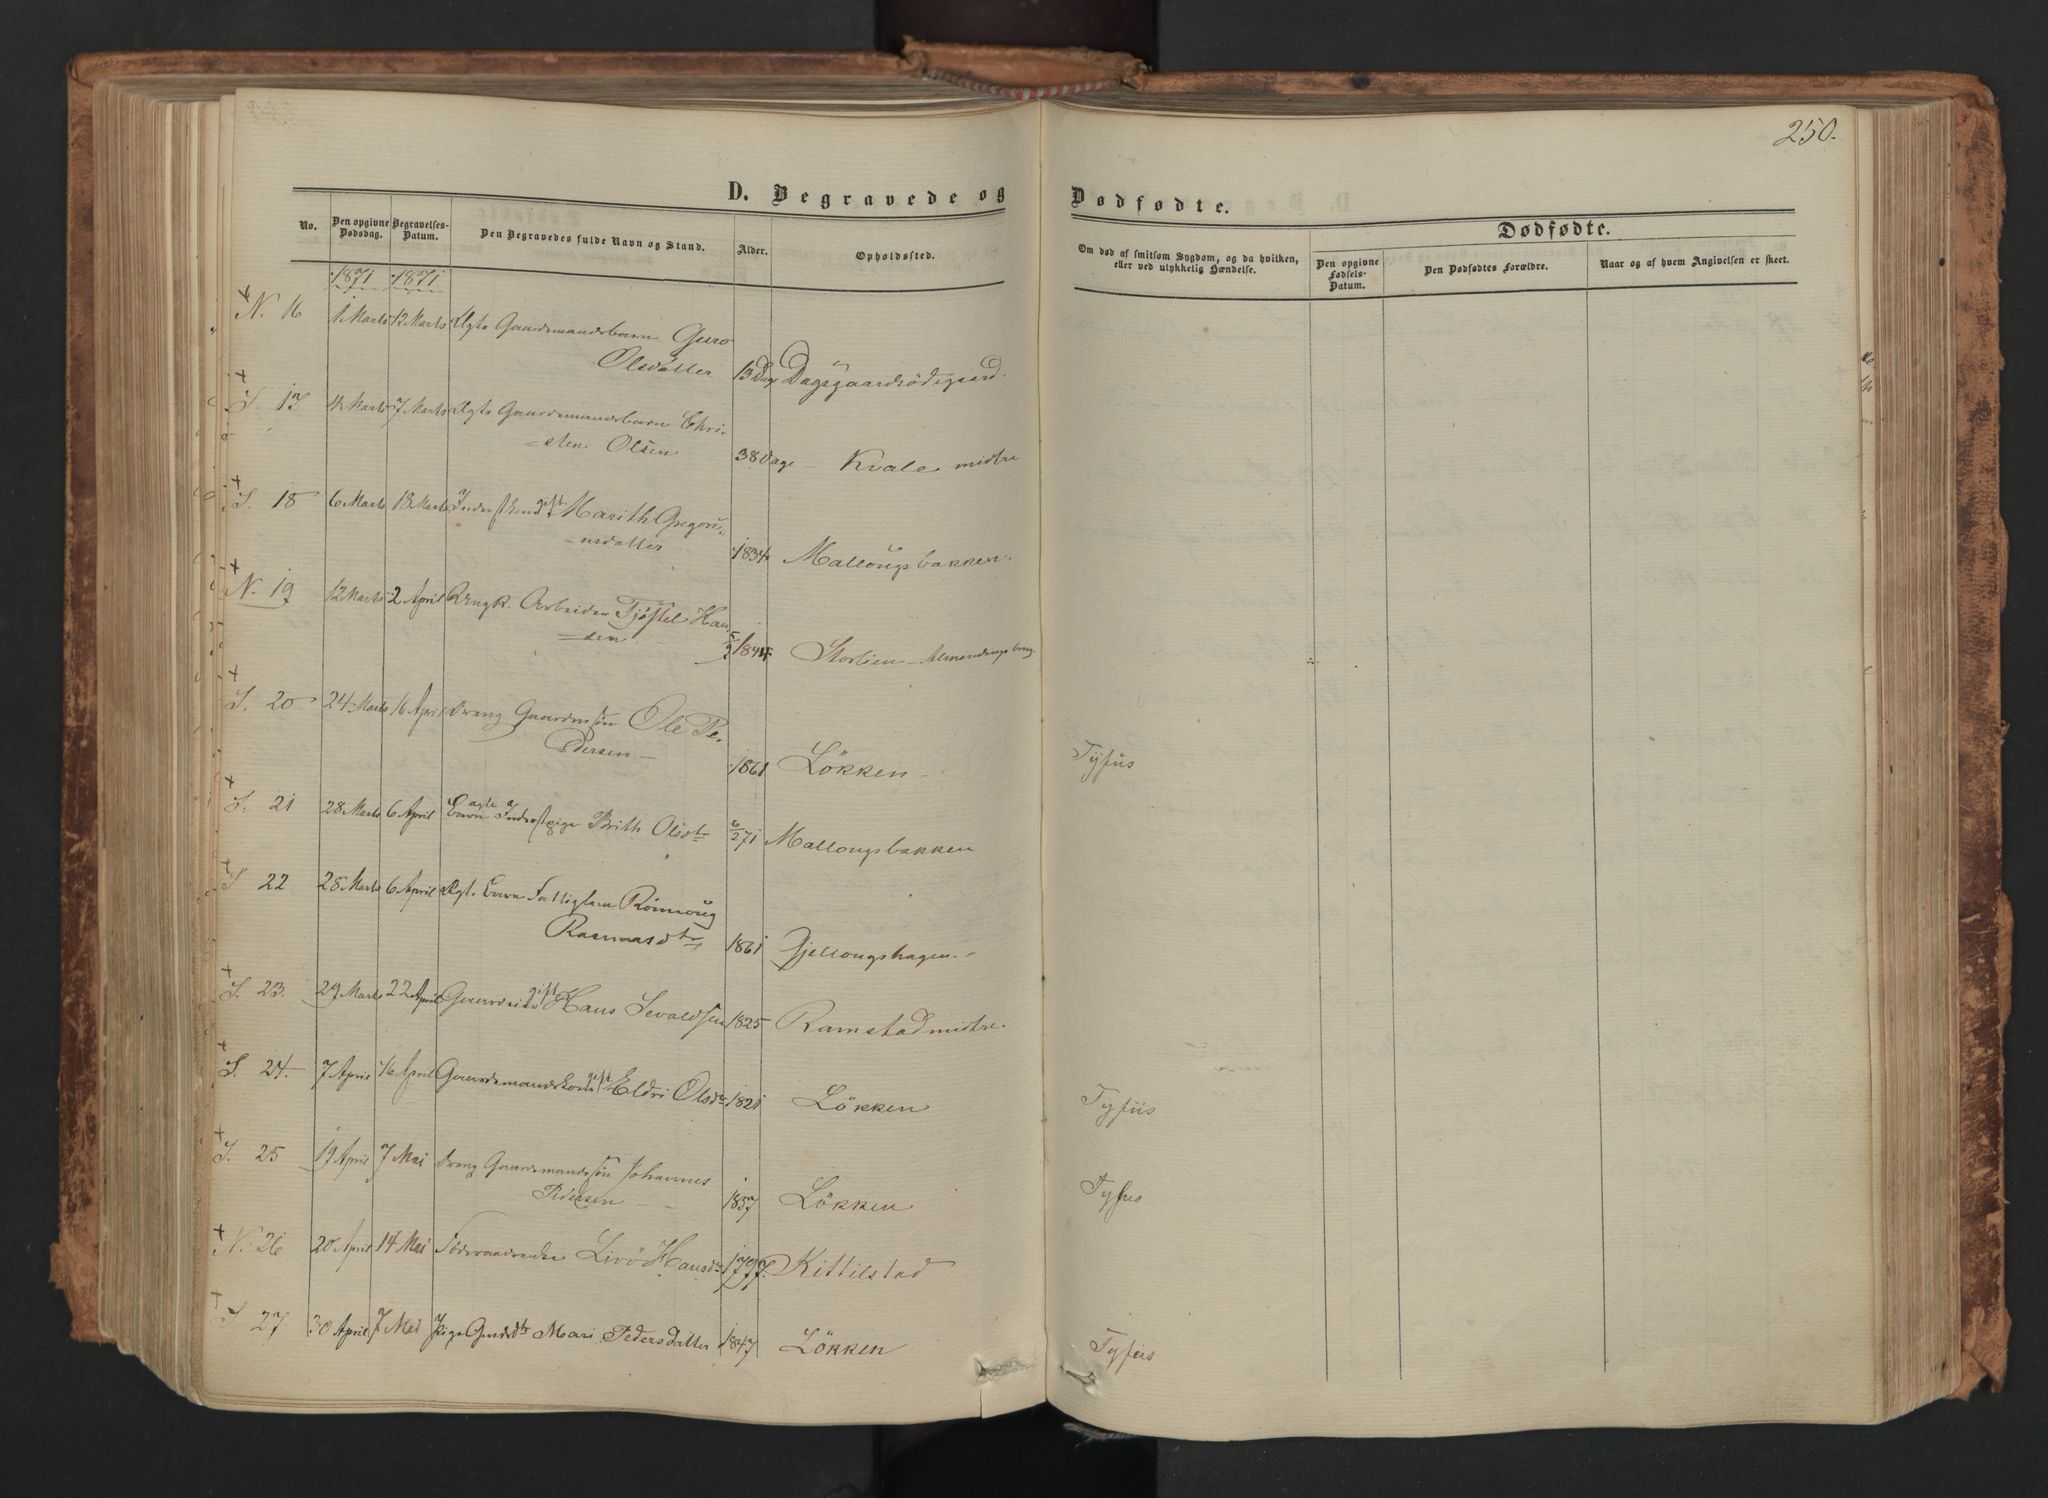 250.
D. Begravede og Dødfødte.
No. Den opgivne Dødsdag. Begravelses-Datum. Den Begravedes fulde Navn og Stand. Alder. Opholdssted. Om død af smitsom Sygdom, og da hvilken, eller ved ulykkelig Hændelse. Dødfødte. Den opgivne Fødsels-Datum. Den Dødfødtes Forældre. Naar og af hvem Angivelsen er skeet.
1871 1871
N. 16 1 Marts 12 Marts Ægte Gaardmandsbarn Guro
Olsdatter 13 Dage Dagsgaardsödegaard.
S. 17 4 Marts 7 Marts Ægte Gaardmandsbarn Chri-
sten Olsen 38 Dage - Kvale midtre
S. 18 6 Marts 18 Marts Inderstkone gift Marith Gregori-
usdatter 1834 Mallougsbakken.
N. 19 12 Marts 2 April Ungk. Arbeider Tjöstel Han-
sen 1844 Storlien - Almendings brug.
S. 20 24 Marts 16 April Dreng Gaardmssön Ole Pe-
dersen 1861 Lökken - Tyfus
S. 21 28 Marts 6 April Barn ægte a Inderstpige Brith Olsdtr 6/2 71 Mallougsbakken
S 22 28 Marts 6 April Ægt. Barn Fattiglem Rönnoug
Rasmusdtr 1861 Gjellougshagen.
S. 23. 29 Marts 22 April Gaardeier gift Hans Sevaldsen 1825 Ramstad midtre.
S. 24. 7 April 16 April Gaardmandskone gift Eldri Olsdtr 1821 Lökken Tyfus
S. 25 19 April 7 Mai Dreng Gaardmandssön Johannes
Pedersen 1857 Lökken Tyfus
N. 26 20 April 14 Mai Föderaadsenke Livö Hansdtr 1797. Kittilstad
S 27 30 April 7 Mai Pige Gmdsdtr Mari Pedersdatter 1847 Lökken Tyfus